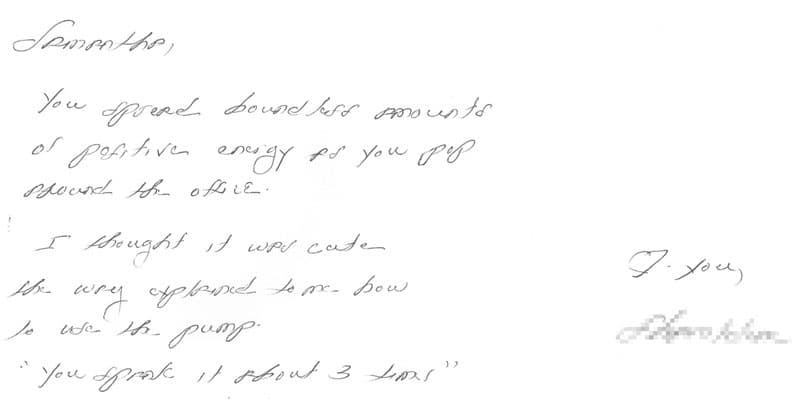 Samantha,
You spread boundless amounts
of positive energy as you pop
around the office.
I thought it was cute
the way explained to me how
to use the pump.
"You it about 3 times"
you,